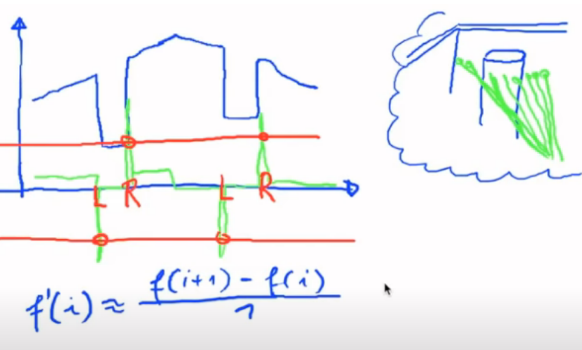 L R L R
f'(i) ≈ f(i+1) - f(i) / 1